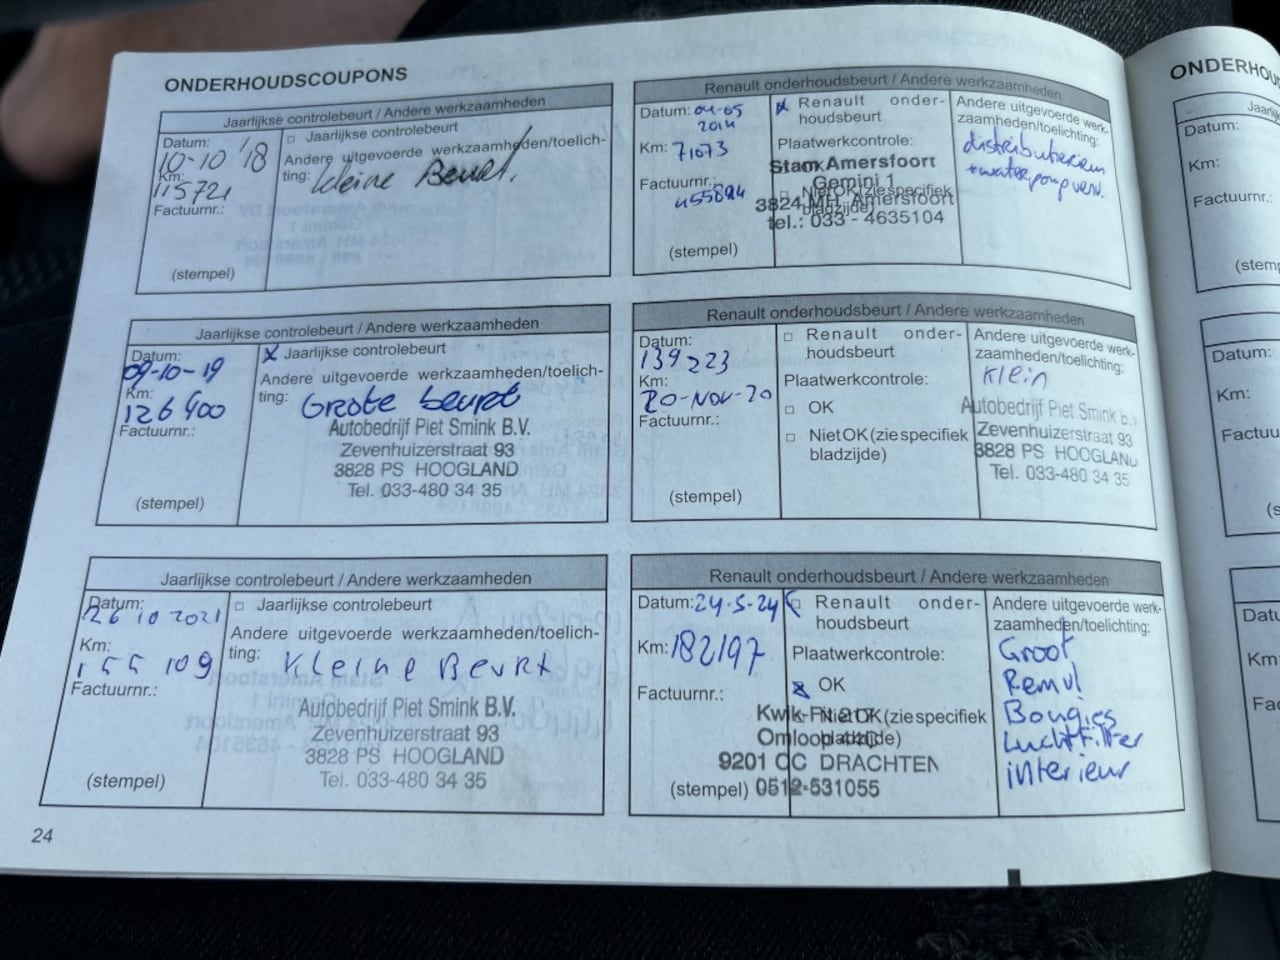 ONDERHOUDSCOUPONS
Jaarlijkse controlebeurt / Andere werkzaamheden
Datum:
10-10 '18
Km:
115721
Factuurnr.:
(stempel)
Jaarlijkse controlebeurt
Andere uitgevoerde werkzaamheden/toelich-
ting: kleine Beurt.
Renault onderhoudsbeurt / Andere werkzaamheden
Datum: 04-05
2014
Km: 71073
Factuurnr.:
(stempel)
Renault onder-
houdsbeurt
Plaatwerkcontrole:
OK
Niet OK (zie specifiek
bladzijde)
Stam Amersfoort
Gemini 1
3824 MH Amersfoort
tel.: 033 - 4635104
Andere uitgevoerde werk-
zaamheden/toelichting:
distributieriem
+waterpomp verv.
Jaarlijkse controlebeurt / Andere werkzaamheden
Datum:
09-10-19
Km:
126400
Factuurnr.:
(stempel)
x Jaarlijkse controlebeurt
Andere uitgevoerde werkzaamheden/toelich-
ting: Grote beurt
Autobedrijf Piet Smink B.V.
Zevenhuizerstraat 93
3828 PS HOOGLAND
Tel. 033-480 34 35
Renault onderhoudsbeurt / Andere werkzaamheden
Datum:
139223
Km:
20-Nov-20
Factuurnr.:
(stempel)
Renault onder-
houdsbeurt
Plaatwerkcontrole:
OK
Niet OK (zie specifiek
bladzijde)
Andere uitgevoerde werk-
zaamheden/toelichting:
Klein
Autobedrijf Piet Smink B.V.
Zevenhuizerstraat 93
3828 PS HOOGLAND
Tel. 033-480 34 35
Jaarlijkse controlebeurt / Andere werkzaamheden
Datum:
26 10 2021
Km:
155 109
Factuurnr.:
(stempel)
Jaarlijkse controlebeurt
Andere uitgevoerde werkzaamheden/toelich-
ting: Kleine Beurt
Autobedrijf Piet Smink B.V.
Zevenhuizerstraat 93
3828 PS HOOGLAND
Tel. 033-480 34 35
Renault onderhoudsbeurt / Andere werkzaamheden
Datum: 24-5-24
Km: 182197
Factuurnr.:
(stempel)
Renault onder-
houdsbeurt
Plaatwerkcontrole:
x OK
Niet OK (zie specifiek
bladzijde)
Kwik-Fit 217
Omloop
9201 CC DRACHTEN
0512-531055
Andere uitgevoerde werk-
zaamheden/toelichting:
Groot
Remvl
Bougies
Luchtfilter
interieur
24
ONDERHOU
Datum:
Km:
Factuurnr.:
Datum:
Km:
Factuu
Datu
Km
Fac